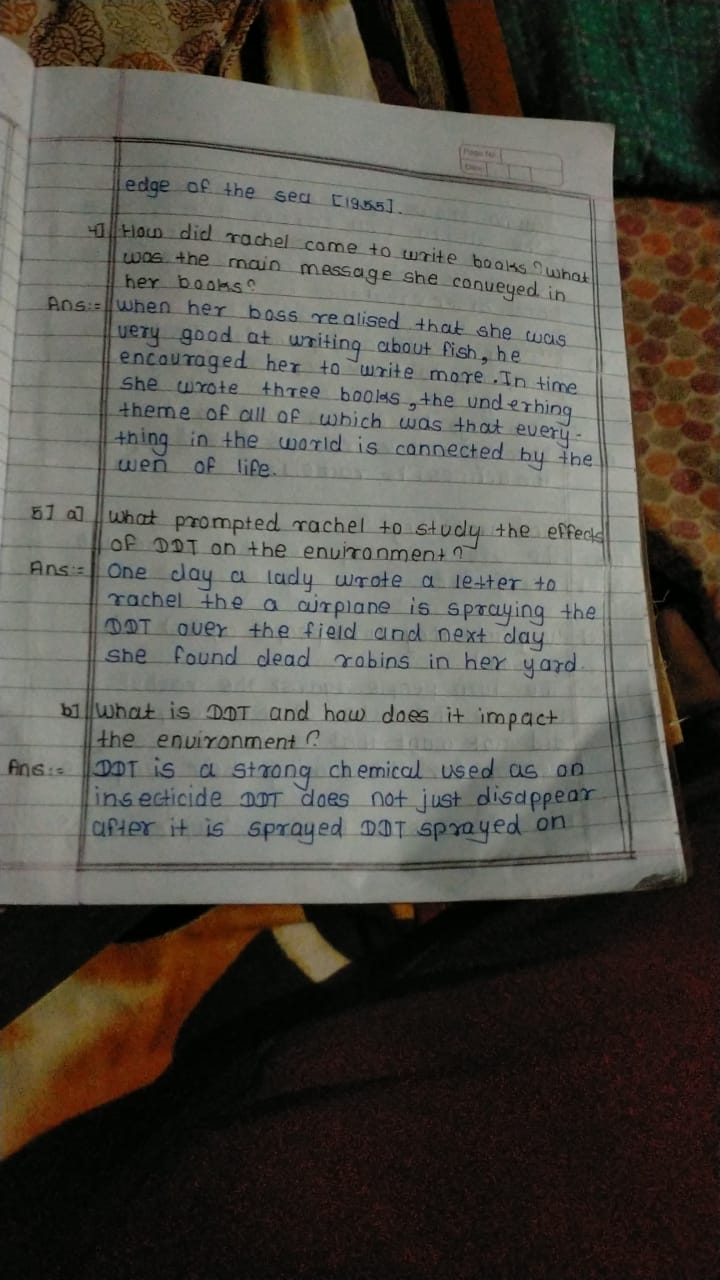 Page No.
Date
edge of the sea [1955].
4] How did rachel come to write books? what
was the main message she conveyed in
her books?
Ans:= When her boss realised that she was
very good at writing about fish, he
encouraged her to write more. In time
she wrote three books, the underhing
theme of all of which was that every-
thing in the world is connected by the
wen of life.
5] a] What prompted rachel to study the effects
of DDT on the environment?
Ans:= One day a lady wrote a letter to
rachel the a airplane is spraying the
DDT over the field and next day
she found dead robins in her yard.
b] What is DDT and how does it impact
the environment?
Ans:= DDT is a strong chemical used as an
insecticide DDT does not just disappear
after it is sprayed DDT sprayed on